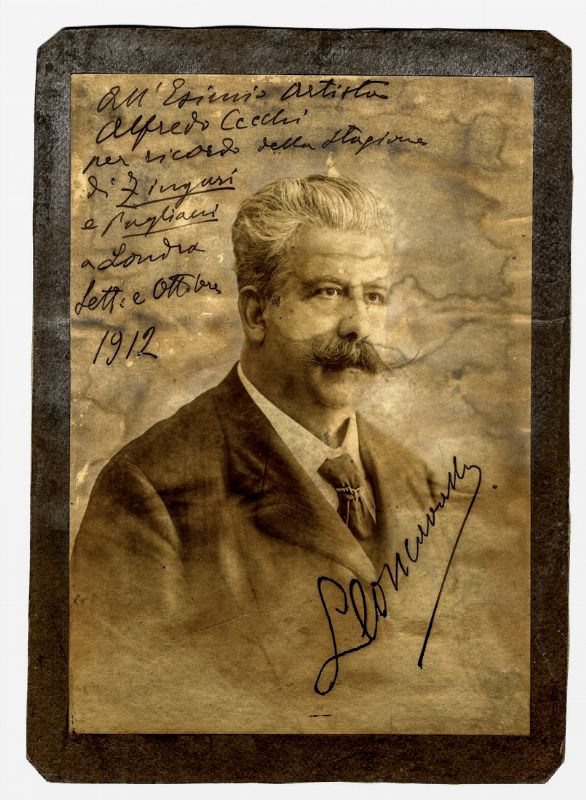 All'Esimio Artista
Alfredo Cecchi
per ricordo della stagione
di Zingari
e Pagliacci
a Londra
Sett. e Ottobre
1912
Leoncavallo